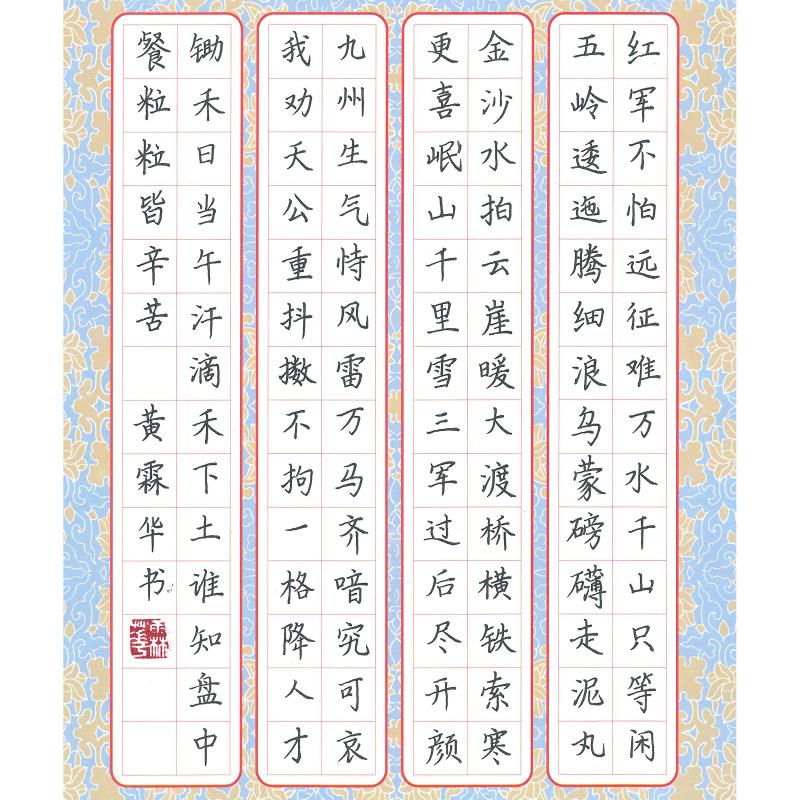 红军不怕远征难万水千山只等闲
五岭逶迤腾细浪乌蒙磅礴走泥丸
金沙水拍云崖暖大渡桥横铁索寒
更喜岷山千里雪三军过后尽开颜
九州生气恃风雷万马齐喑究可哀
我劝天公重抖擞不拘一格降人才
锄禾日当午汗滴禾下土谁知盘中
餐粒粒皆辛苦 黄霖华书
霖華